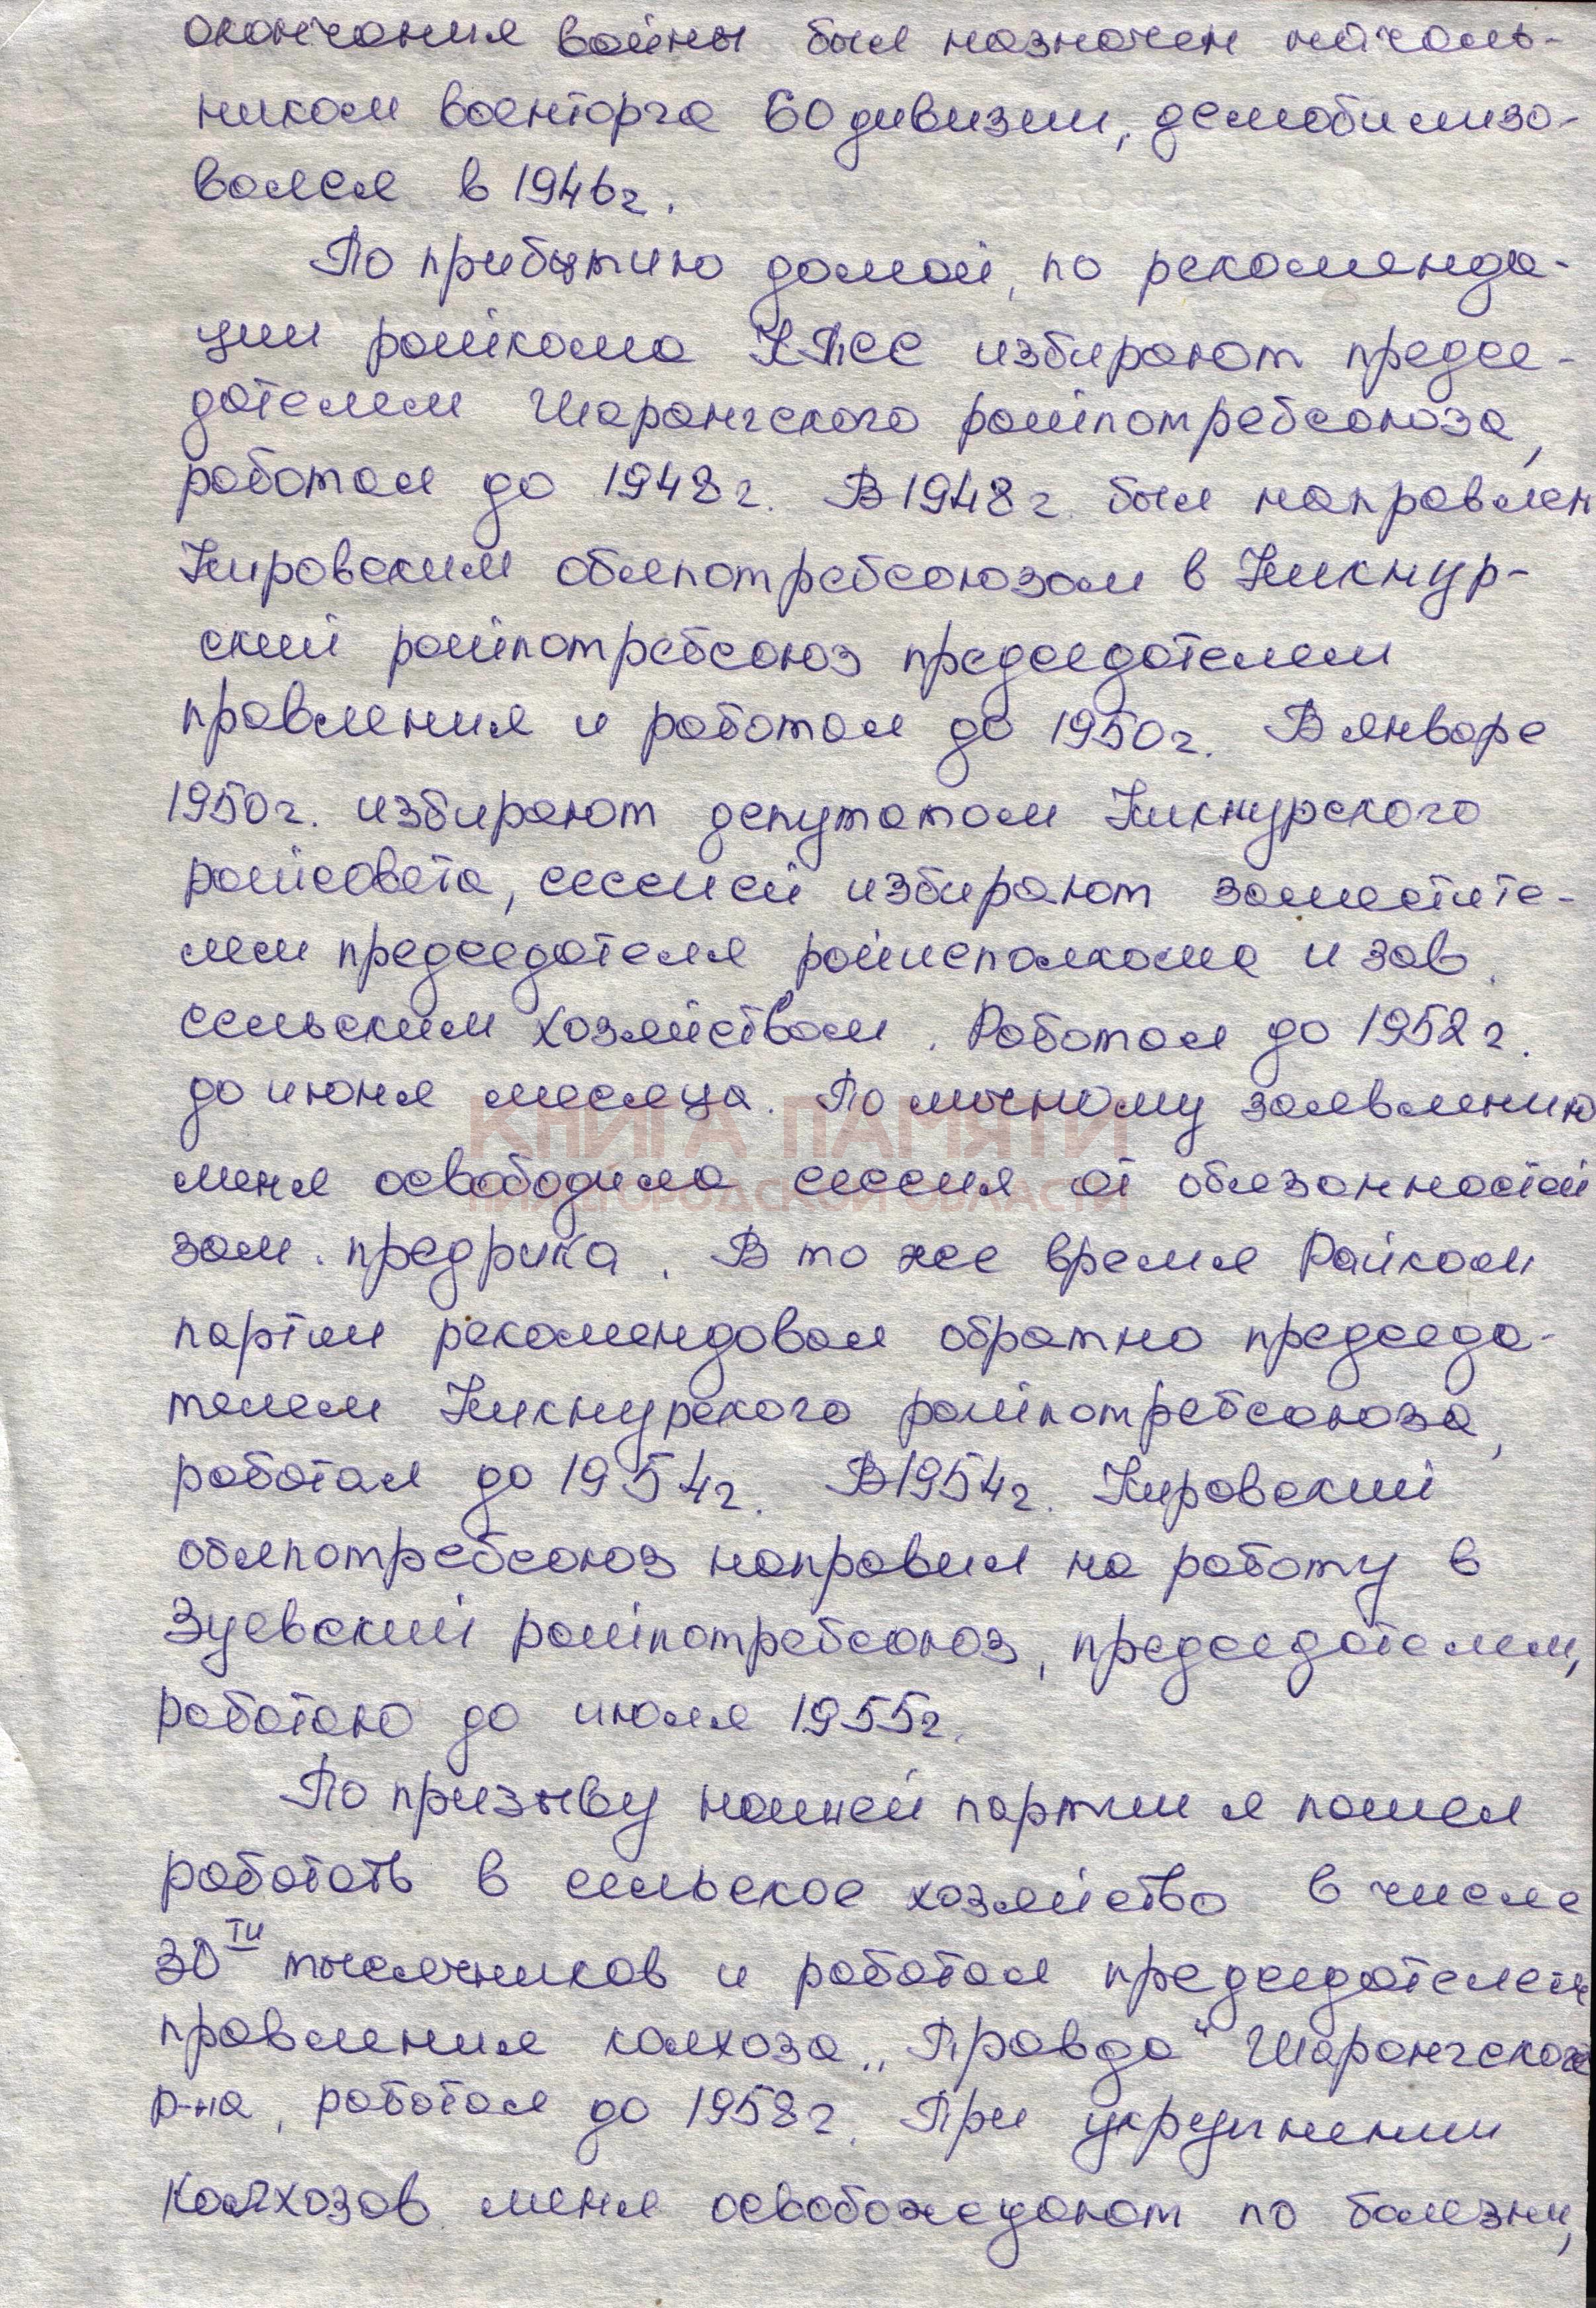 окончания войны был назначен началь-
ником военторга 60 дивизии, демобилизо-
вался в 1946г.
По прибытию домой, по рекоменда-
ции райкома КПСС избирают предсе-
дателем Шарангского райпотребсоюза,
работал до 1948г. В 1948г. был направлен
Кировским облпотребсоюзом в Кикнур-
ский райпотребсоюз председателем
правления и работал до 1950г. В январе
1950г. избирают депутатом Кикнурского
райсовета, сессией избирают заместите-
лем председателя райисполкома и зав.
сельским хозяйством. Работал до 1952г.
до июня месяца. По личному заявлению
меня освободила сессия от обязанностей
зам. предрика. В то же время Райком
партии рекомендовал обратно председа-
телем Кикнурского райпотребсоюза,
работал до 1954г. В 1954г. Кировский
облпотребсоюз направил на работу в
Зуевский райпотребсоюз, председателем,
работаю до июля 1955г.
По призыву нашей партии я пошел
работать в сельское хозяйство в числе
30ти тысячников и работал председателем
правления колхоза „Правда" Шарангского
р-на, работал до 1958г. При укрупнении
колхозов меня освобождают по болезни,
КНИГА ПАМЯТИ
НИЖЕГОРОДСКОЙ ОБЛАСТИ